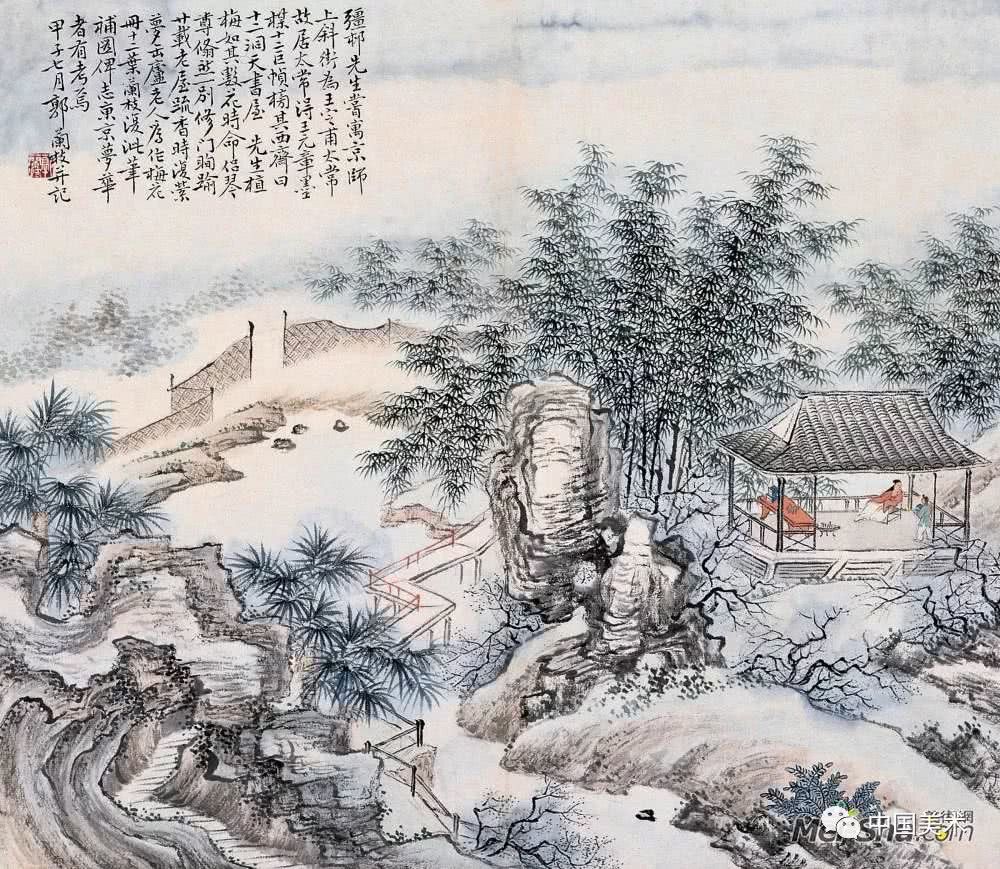 彊邨先生嘗寓京師
上斜街為王定甫太常
故居太常得王元章墨
楳十二巨幀榜其西齋曰
十二洞天書屋 先生植
梅如其數花時命侣琴
尊翛然一別修门駒踰
廿載老屋疏香時復縈
夢缶廬老人為作梅花
冊十二葉蘭枝復泚筆
補圖俾志東京夢華
者有考焉
甲子七月郭蘭枝并記
中国美术